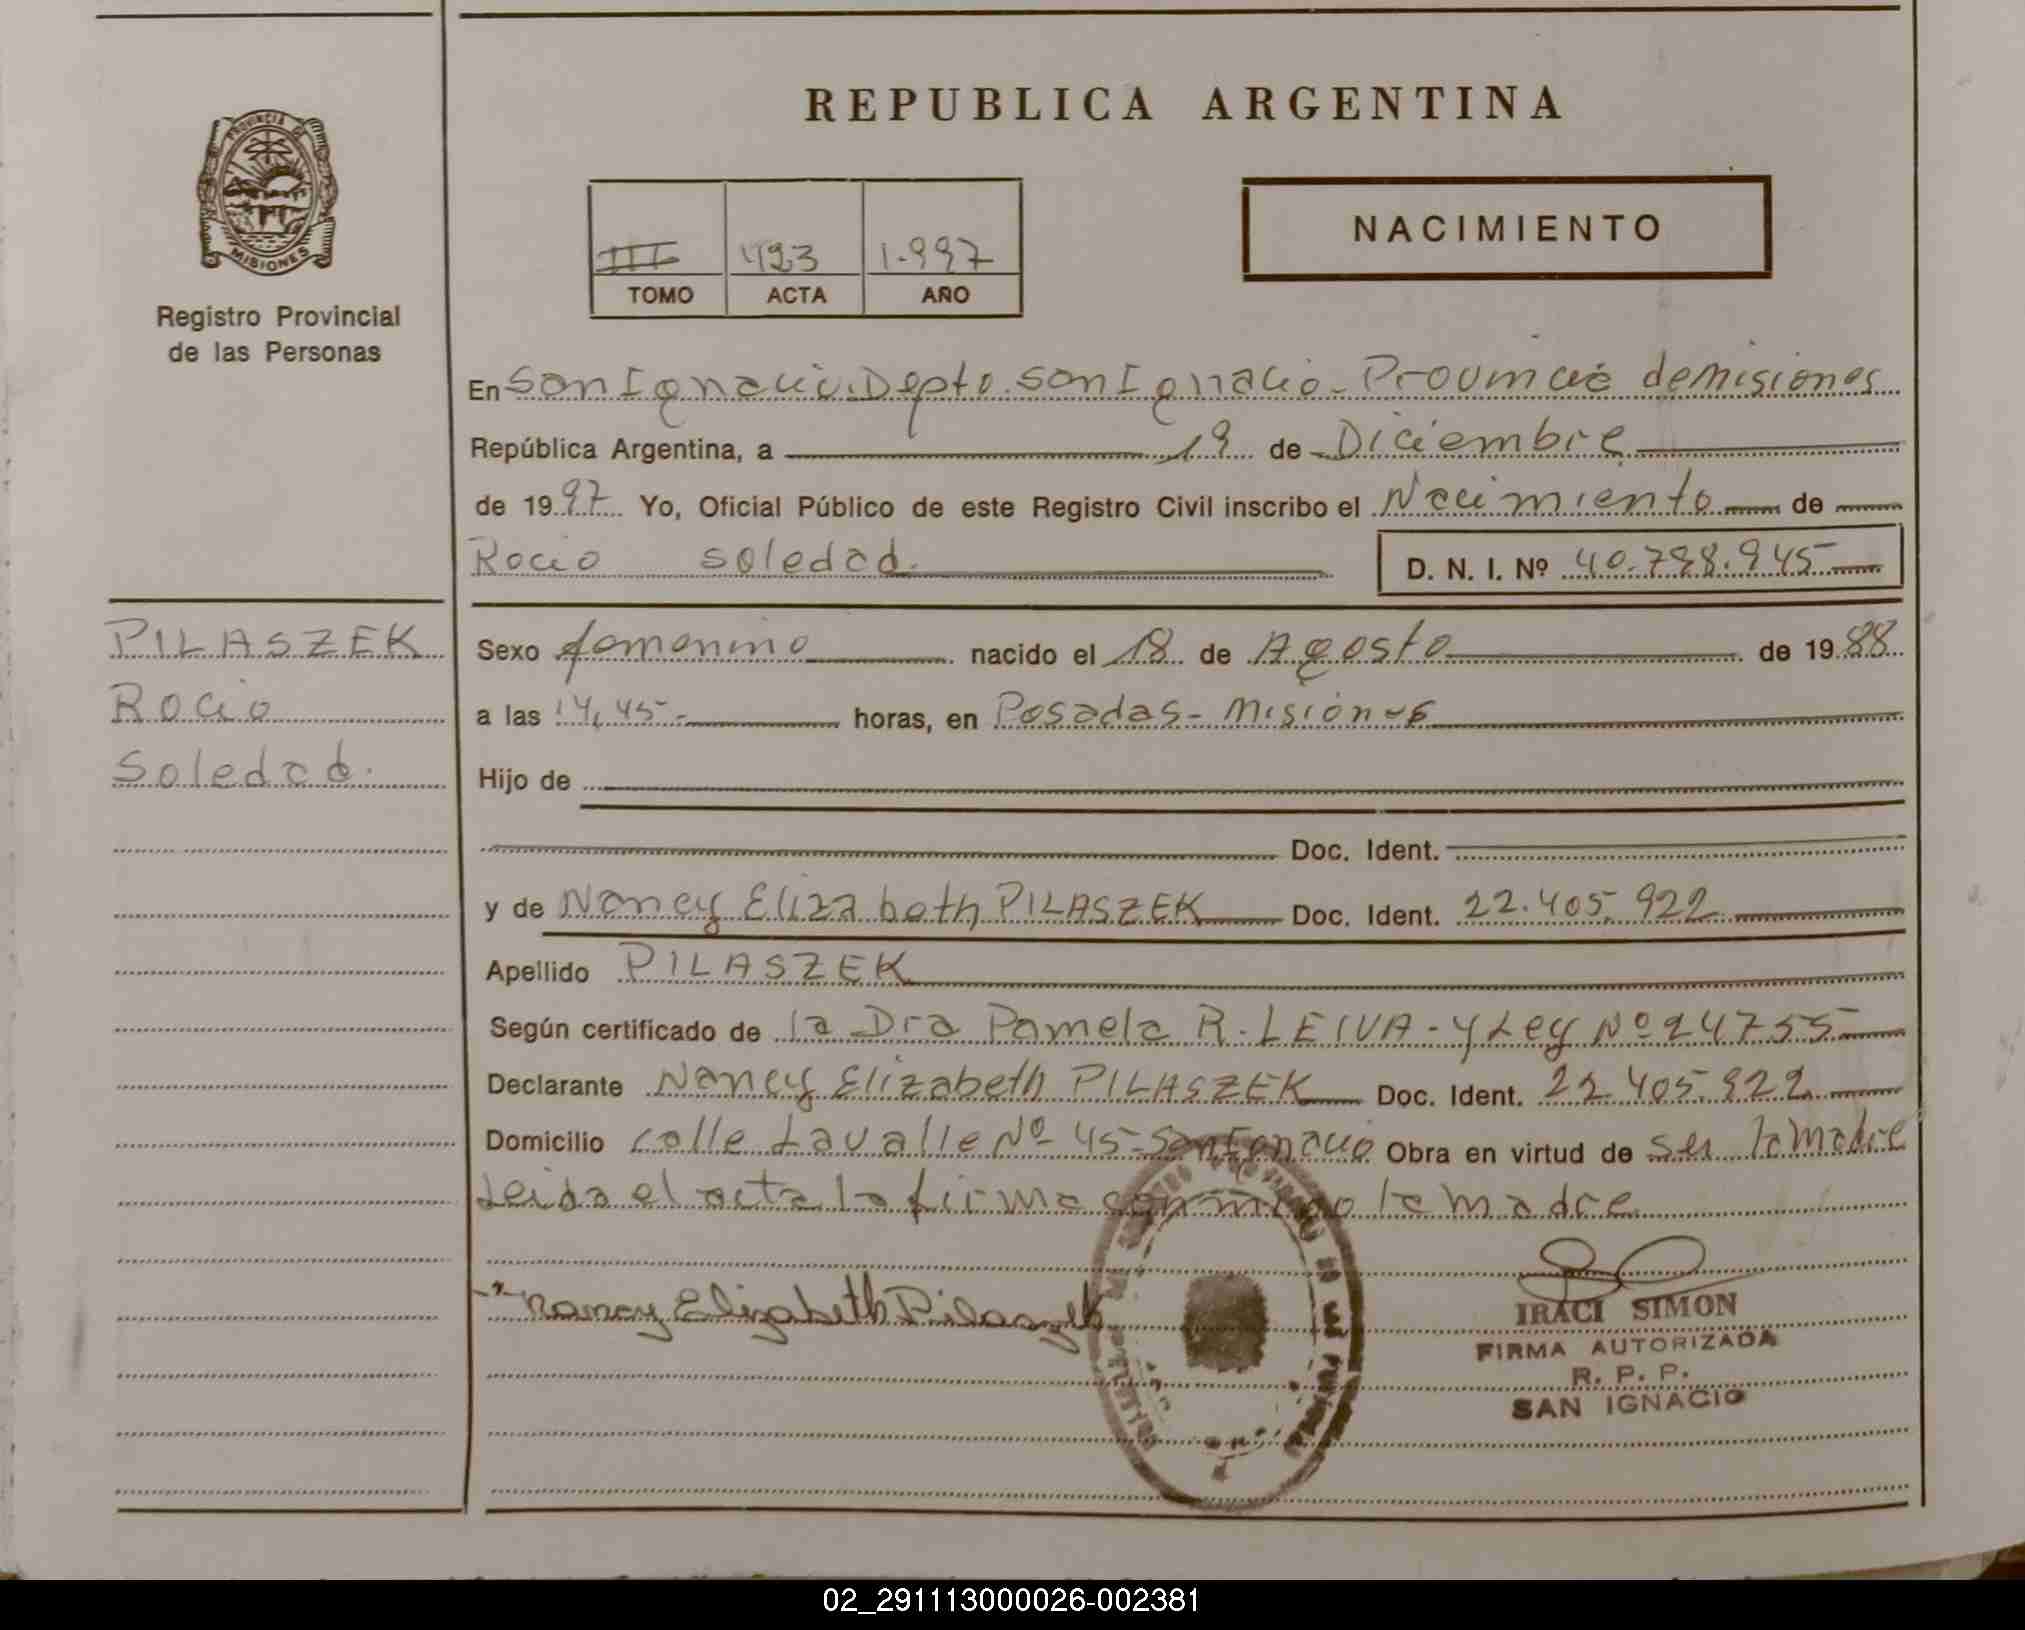 REPUBLICA ARGENTINA
PROVINCIA DE
MISIONES
Registro Provincial
de las Personas
NACIMIENTO
III 493 1.997
TOMO ACTA AÑO
En San Ignacio. Depto. San Ignacio - Provincia de Misiones
República Argentina, a 19 de Diciembre
de 1997 Yo, Oficial Público de este Registro Civil inscribo el Nacimiento de
Rocio Soledad. D. N. I. Nº 40.798.945
PILASZEK
Rocio
Soledad.
Sexo femenino nacido el 18 de Agosto de 1988
a las 14,45- horas, en Posadas - Misiones
Hijo de
Doc. Ident.
y de Nancy Elizabeth PILASZEK Doc. Ident. 22.405.922
Apellido PILASZEK
Según certificado de la Dra Pamela R. LEIVA - y Ley Nº 24755
Declarante Nancy Elizabeth PILASZEK Doc. Ident. 22.405.922
Domicilio Calle Lavalle Nº 45 - San Ignacio Obra en virtud de ser la madre
Leida el acta la firma conmigo la madre
Nancy Elizabeth Pilaszek
IRACI SIMON
FIRMA AUTORIZADA
R. P. P.
SAN IGNACIO
02_291113000026-002381